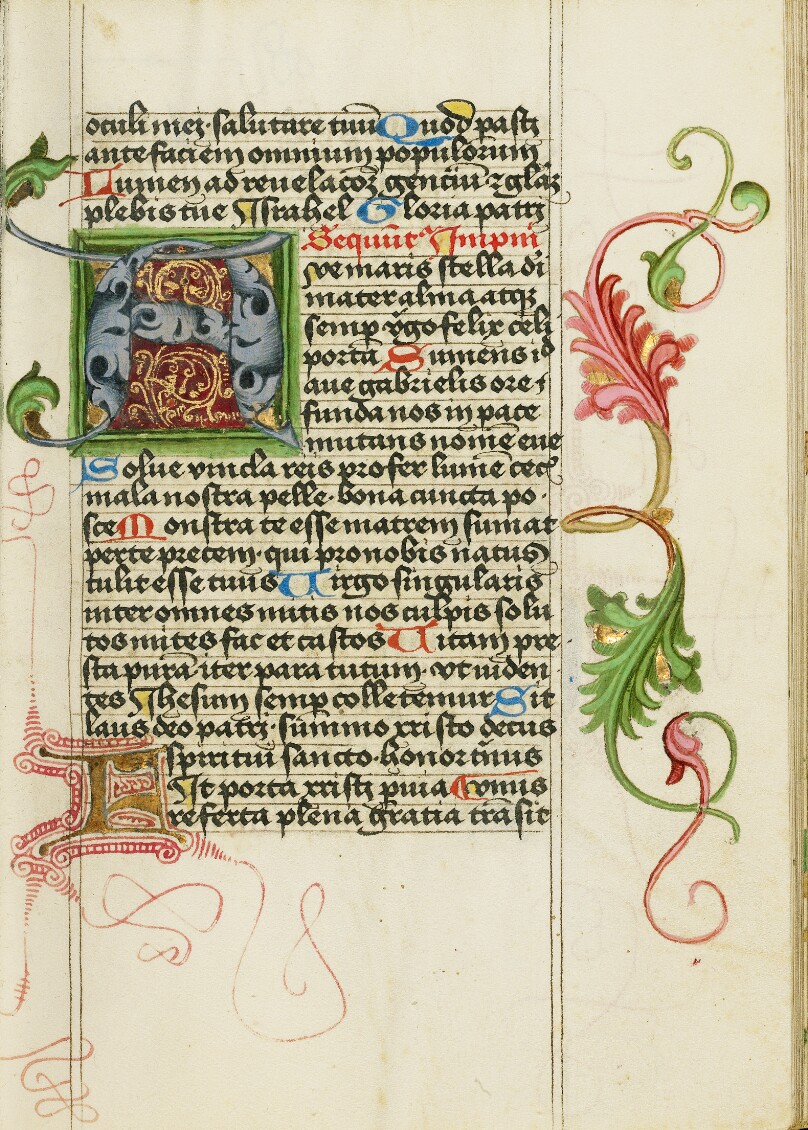 oculi mei · salutare tuū Quod pasti
ante faciem omnium populorum
Lumen ad reuelacōꝫ genciū ⁊ glāꝫ
plebis tue Jsrahel Gloria patri
Sequūt͛ Jmpni
Ave maris stella di
mater alma atqꝫ
semp v̾go felix celi
porta Sumens id
aue gabrielis ore ·
funda nos in pace
mutans nomē eue
Solue vincla reis profer lumē cecꝭ
mala nostra pelle · bona cuncta po ·
sce Monstra te esse matrem sumat
per te precem · qui pro nobis natus
tulit esse tuus Uirgo singularis
inter omnes mitis nos culpis solu
tos mites fac et castos Uitam pre
sta purā · iter para tutum · vt uiden
tes Jhesum semp colletemur Sit
laus deo patri · sūmmo xristo decus
spiritui sancto · honor t͛nus
Fit porta xristi puia Comis
referta plena gratia trāsit